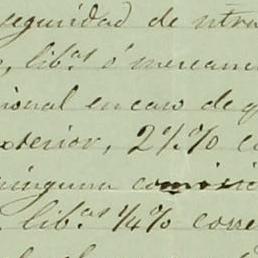 seguridad de ntra
, lib.as ó mercanc
ional en caso de q
xterior, 2 1/2 % co
ninguna comisio
lib.as 1/4 % corre